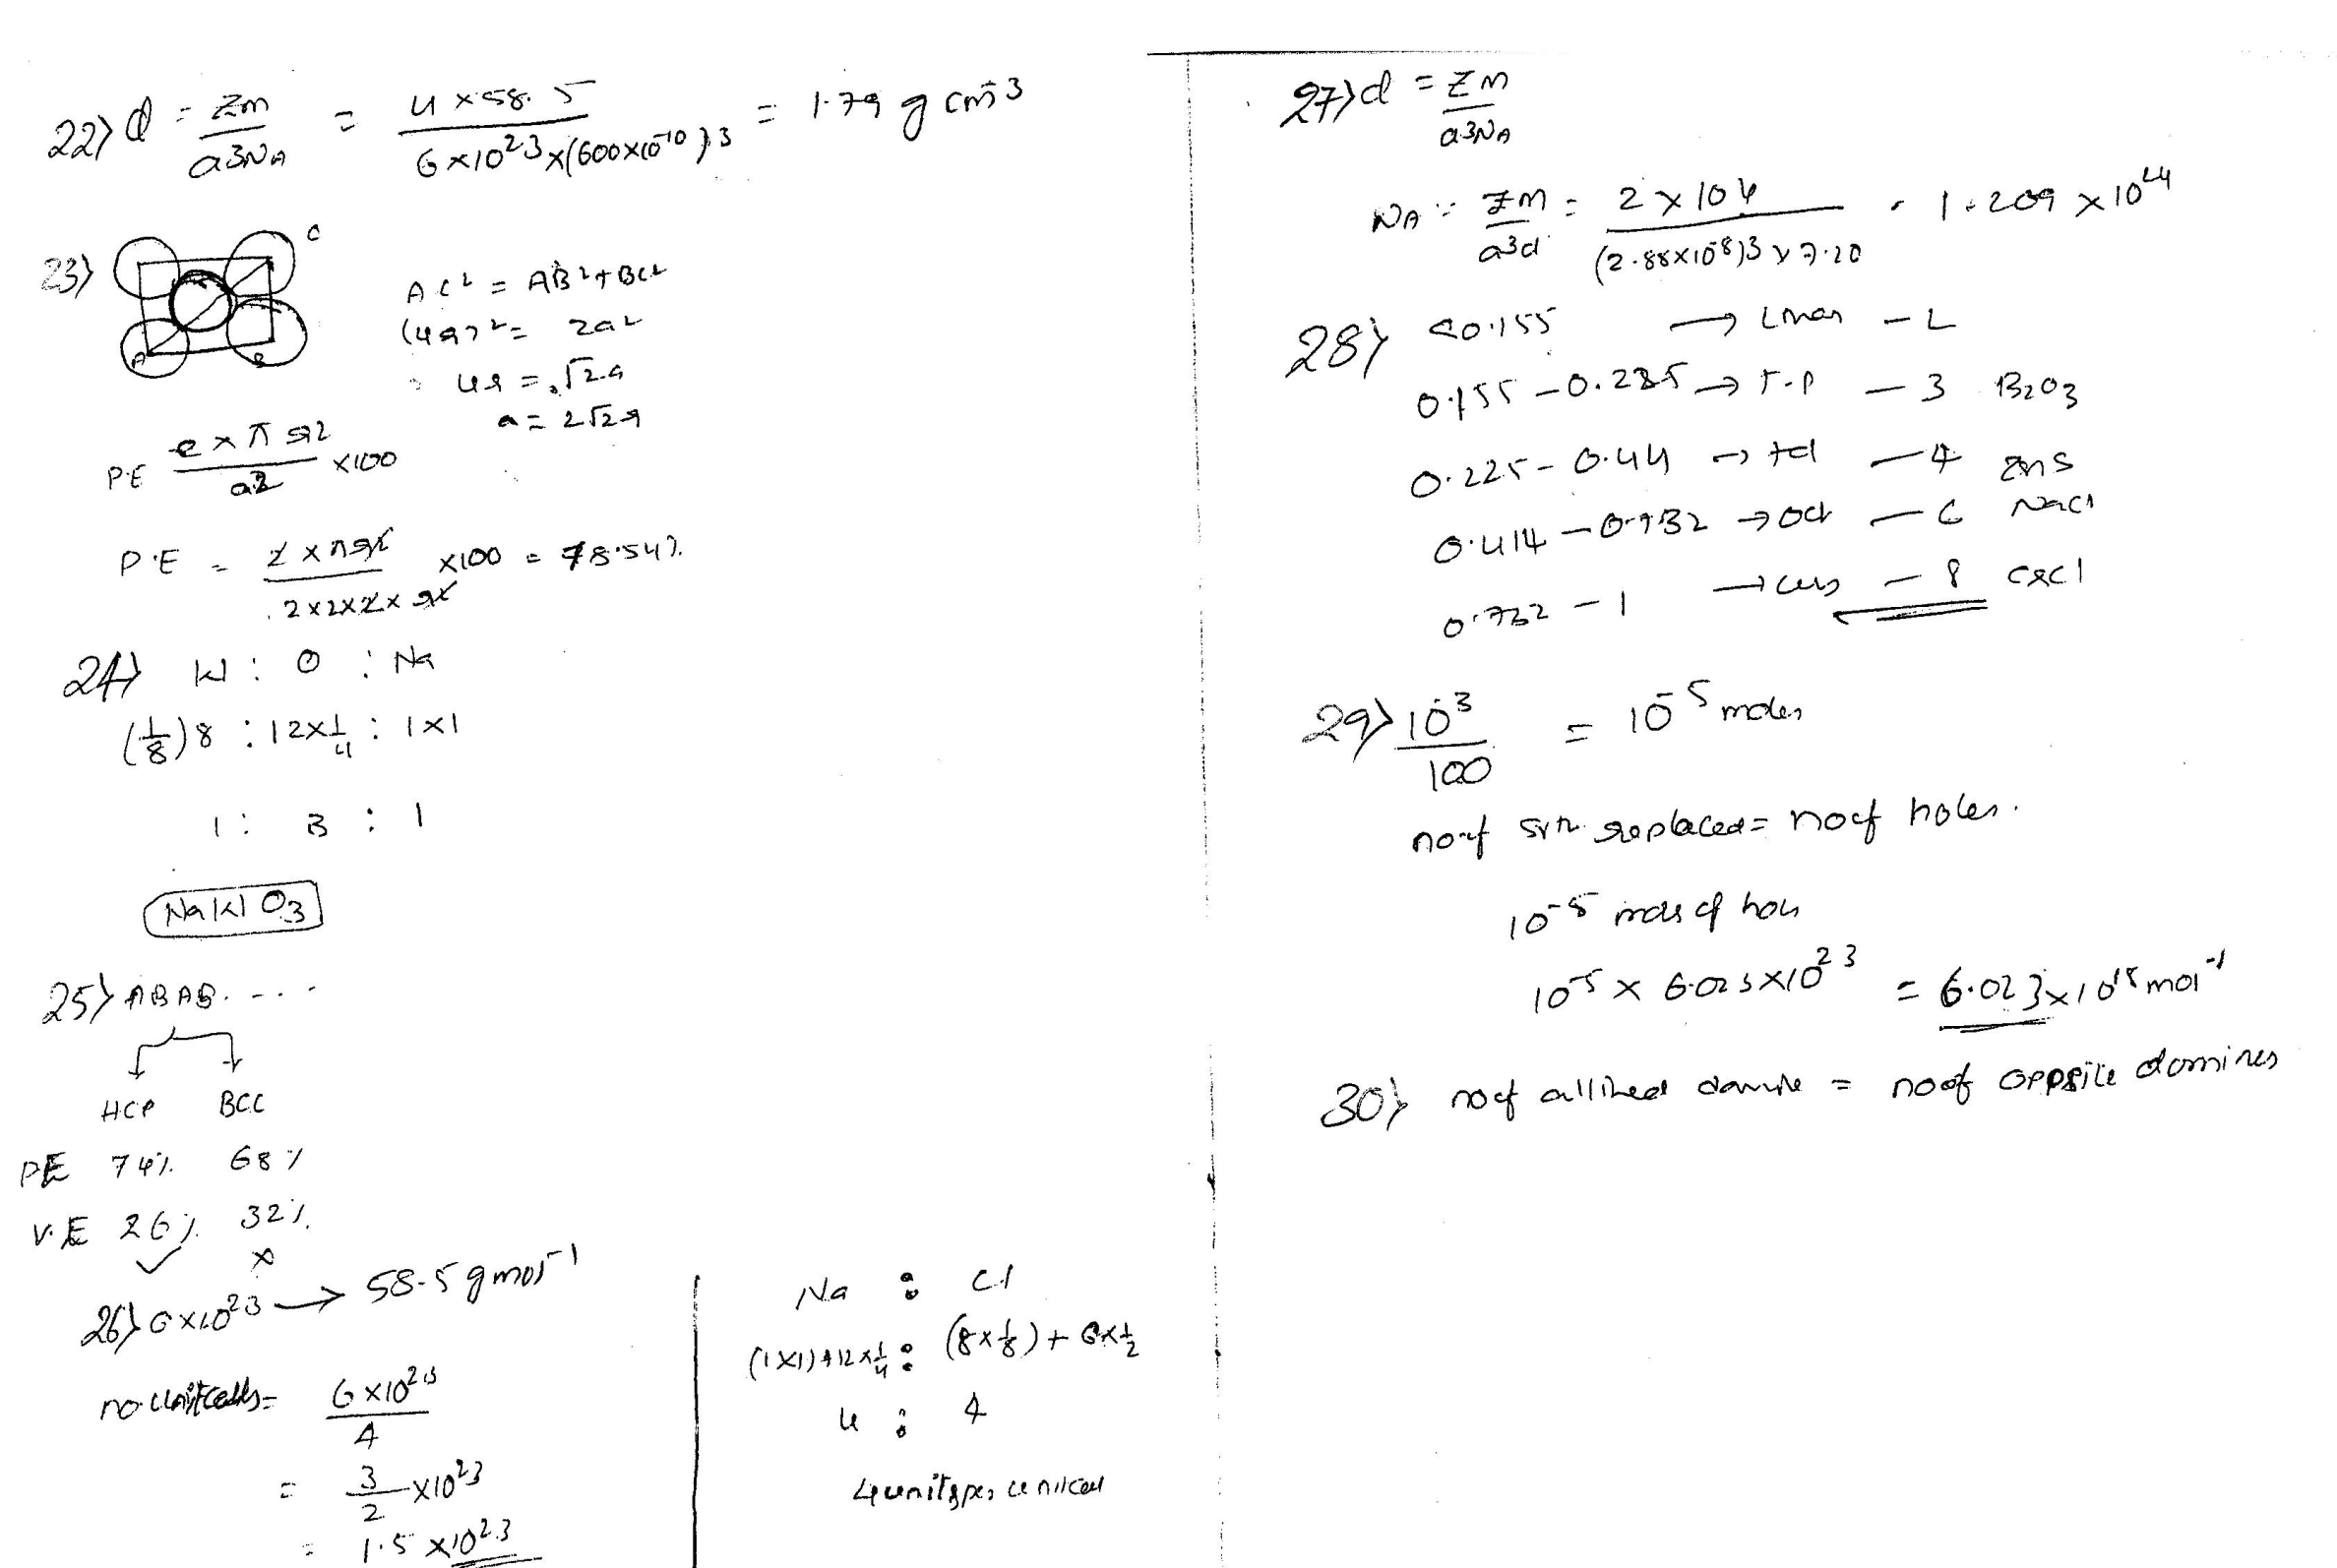 22) d = Zm / a3NA = 4 x 58.5 / 6x10^23 x(600x10^-10)3 = 1.79 g cm^-3
23)
C
A
B
AC2 = AB2 + BC2
(4r)2 = 2a2
4r = √2a
a = 2√2r
P.E 2 x π r2 / a2 x100
P.E = 2 x πr2 / 2x2x2x r2 x100 = 78.54%
24) W : O : Na
(1/8)8 : 12x1/4 : 1x1
1 : 3 : 1
NaWO3
25) ABAB. ...
HCP BCC
PE 74% 68%
V.E 26% 32%
✓ x
26) 6x10^23 → 58.5 g mol^-1
no unitcells = 6x10^23 / 4
= 3/2 x10^23
= 1.5 x10^23
Na : Cl
(1x1)+12x1/4 : (8x1/8)+6x1/2
4 : 4
4 units per unitcell
27) d = ZM / a3NA
NA = ZM / a3d = 2 x 104 / (2.88x10^-8)3 x 7.20 = 1.209 x10^24
28) <0.155 → Linear - L
0.155 - 0.225 → T.P - 3 B2O3
0.225 - 0.44 → td - 4 ZnS
0.414 - 0.732 → Oct - 6 NaCl
0.732 - 1 → - 8 CsCl
29) 10^-3 / 100 = 10^-5 moles
no of replaced = no of holes.
10^-5 mols of
10^-5 x 6.023x10^23 = 6.023x10^18 mol^-1
30) no of domine = no of oppsite domines